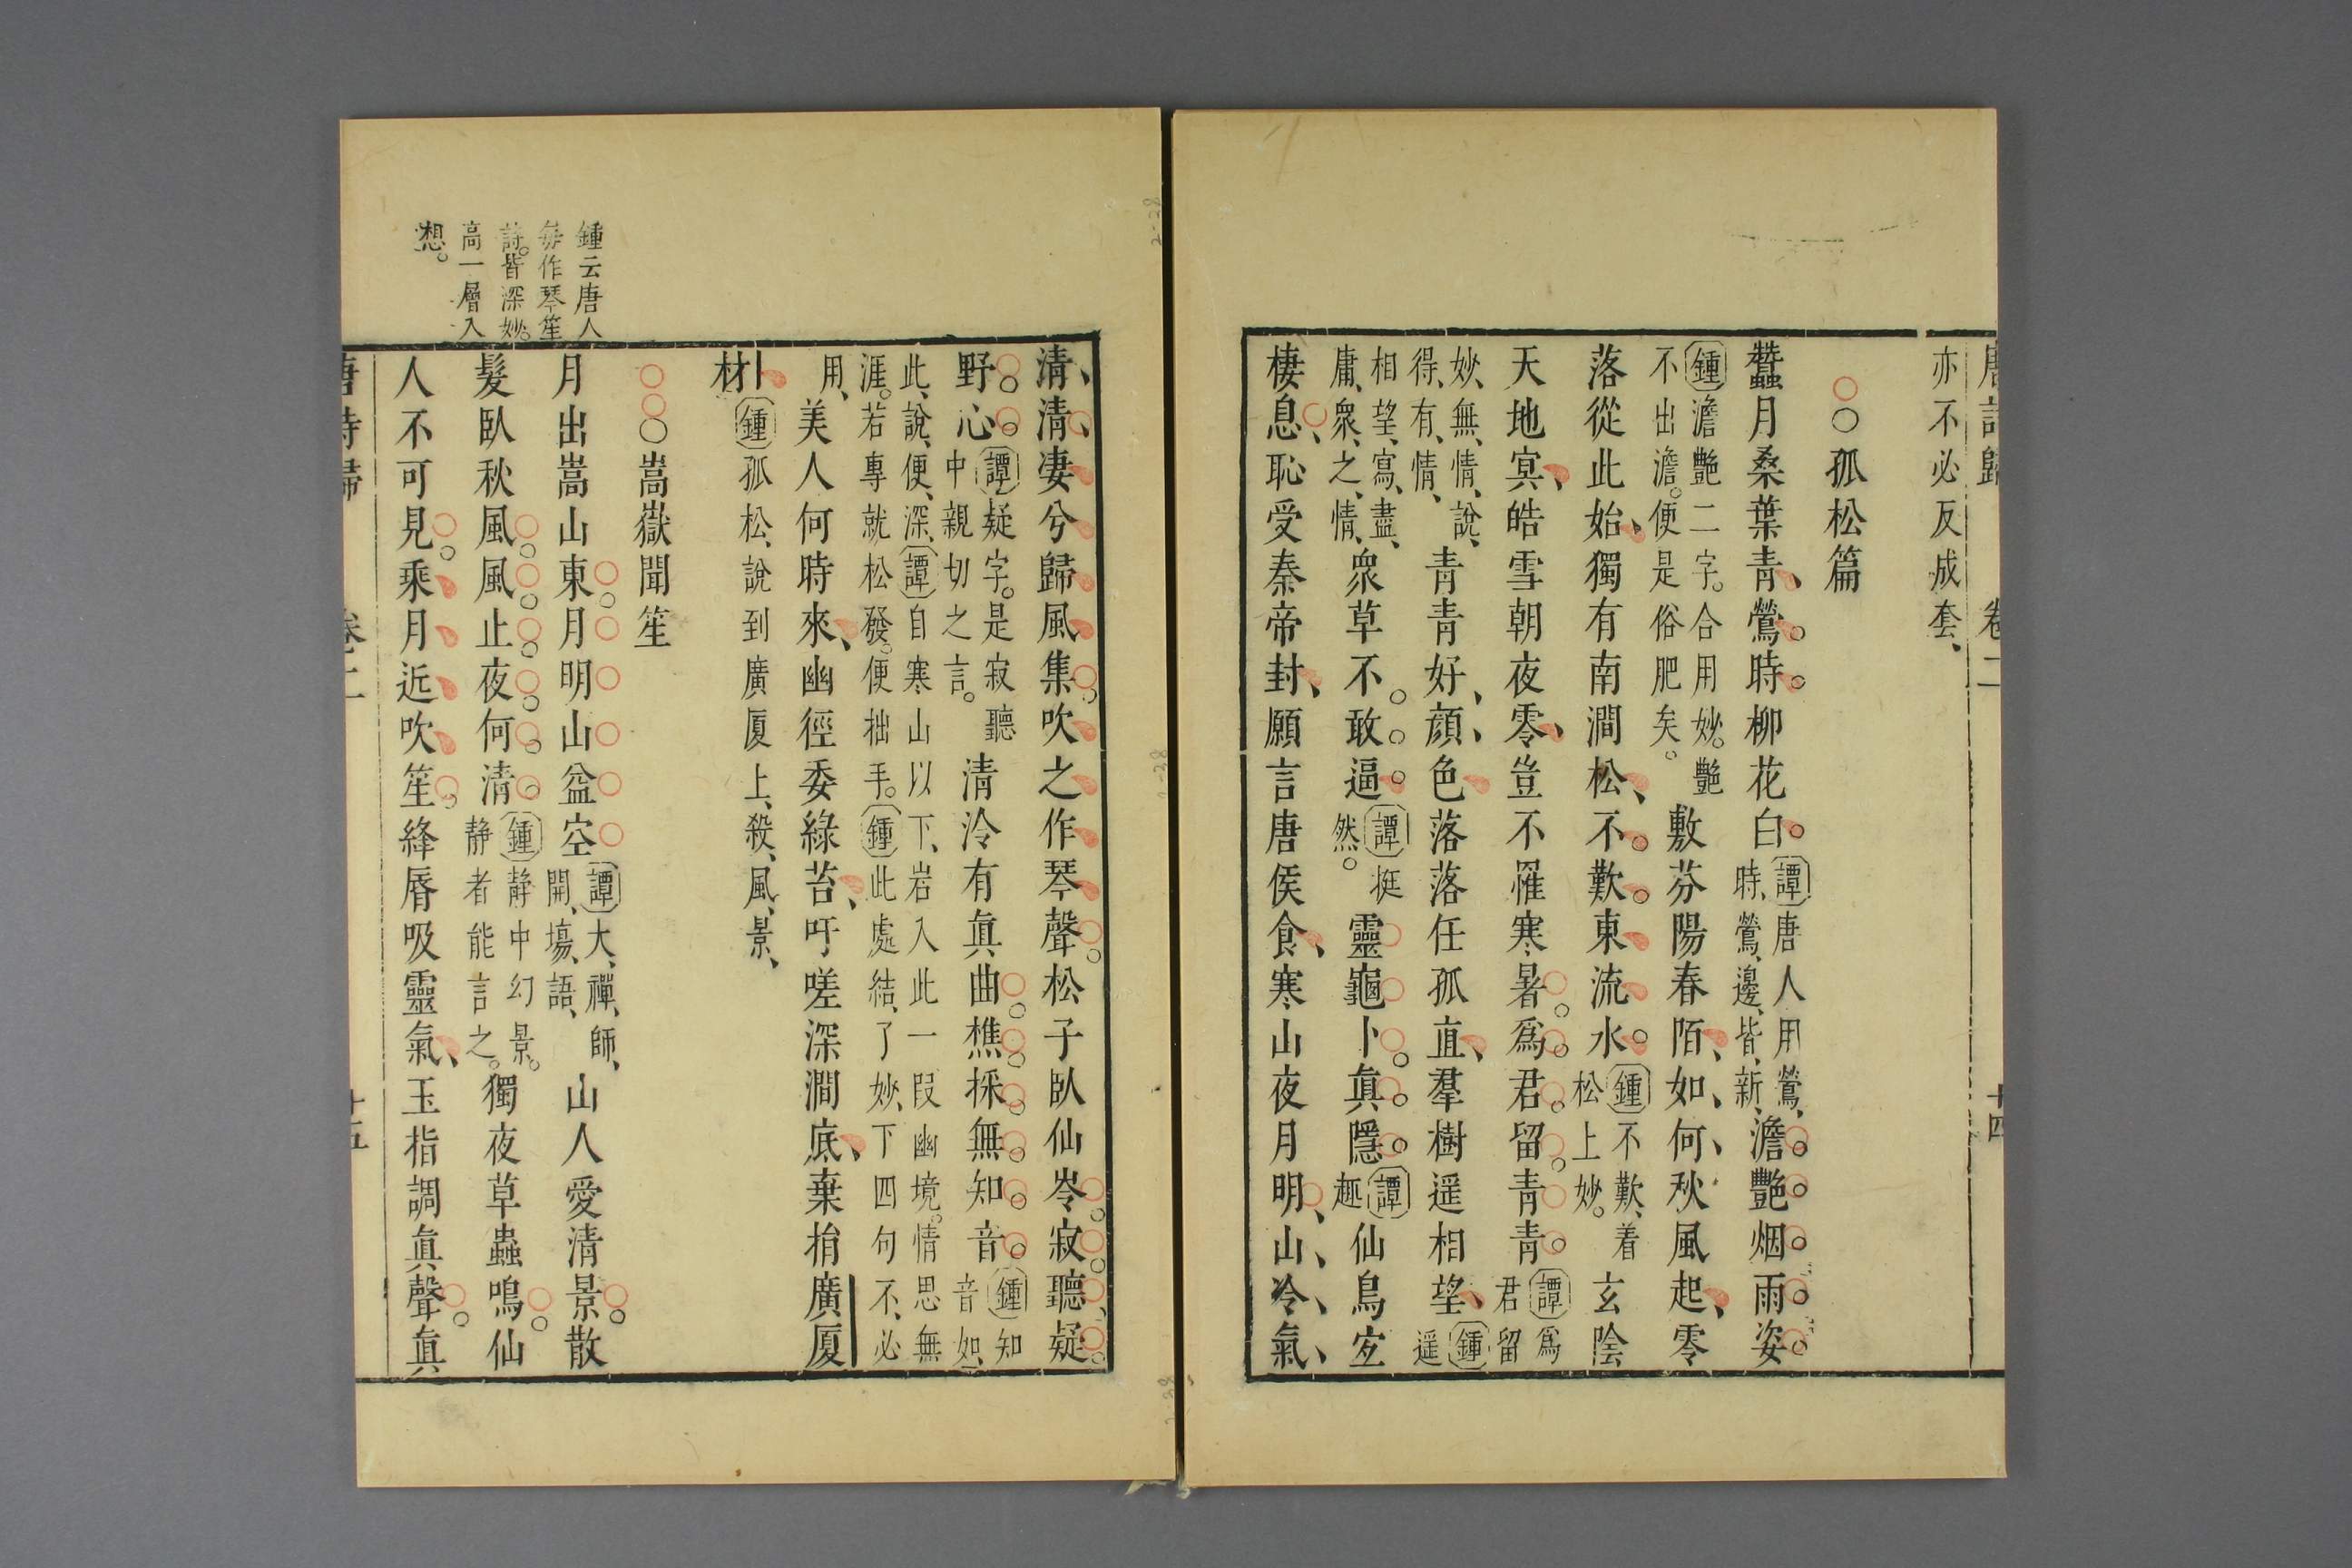 唐詩歸 卷二 十四
亦不必反成套
孤松篇
蠶月桑葉青鶯時柳花白譚唐人用鶯時鶯邊皆新澹艷烟雨姿
鍾澹艷二字合用妙艷不出澹便是俗肥矣敷芬陽春陌如何秋風起零
落從此始獨有南澗松不歎東流水鍾不歎着松上妙玄陰
天地冥皓雪朝夜零豈不罹寒暑爲君留青青譚爲君留
妙無情說得有情青青好顏色落落任孤直羣樹遥相望鍾遥
相望寫盡庸衆之情衆草不敢逼譚挺然靈龜卜真隱譚趣仙鳥宜
棲息恥受秦帝封願言唐侯食寒山夜月明山冷氣
清清凄兮歸風集吹之作琴聲松子臥仙岑寂聽疑
野心譚疑字是寂聽中親切之言清泠有真曲樵採無知音鍾知音如
此說便深譚自寒山以下岩入此一段幽境情思無涯若專就松發便拙手鍾此處結了妙下四句不必
用美人何時來幽徑委綠苔吁嗟深澗底棄捐廣厦
材鍾孤松說到廣厦上殺風景
嵩嶽聞笙
月出嵩山東月明山益空譚大禪師開塲語山人愛清景散
髮臥秋風風止夜何清鍾静中幻景静者能言之獨夜草蟲鳴仙
人不可見乘月近吹笙絳唇吸靈氣玉指調真聲真
唐詩歸 卷二 十五
鍾云唐人
每作琴笙
詩皆深妙
高一層入
想